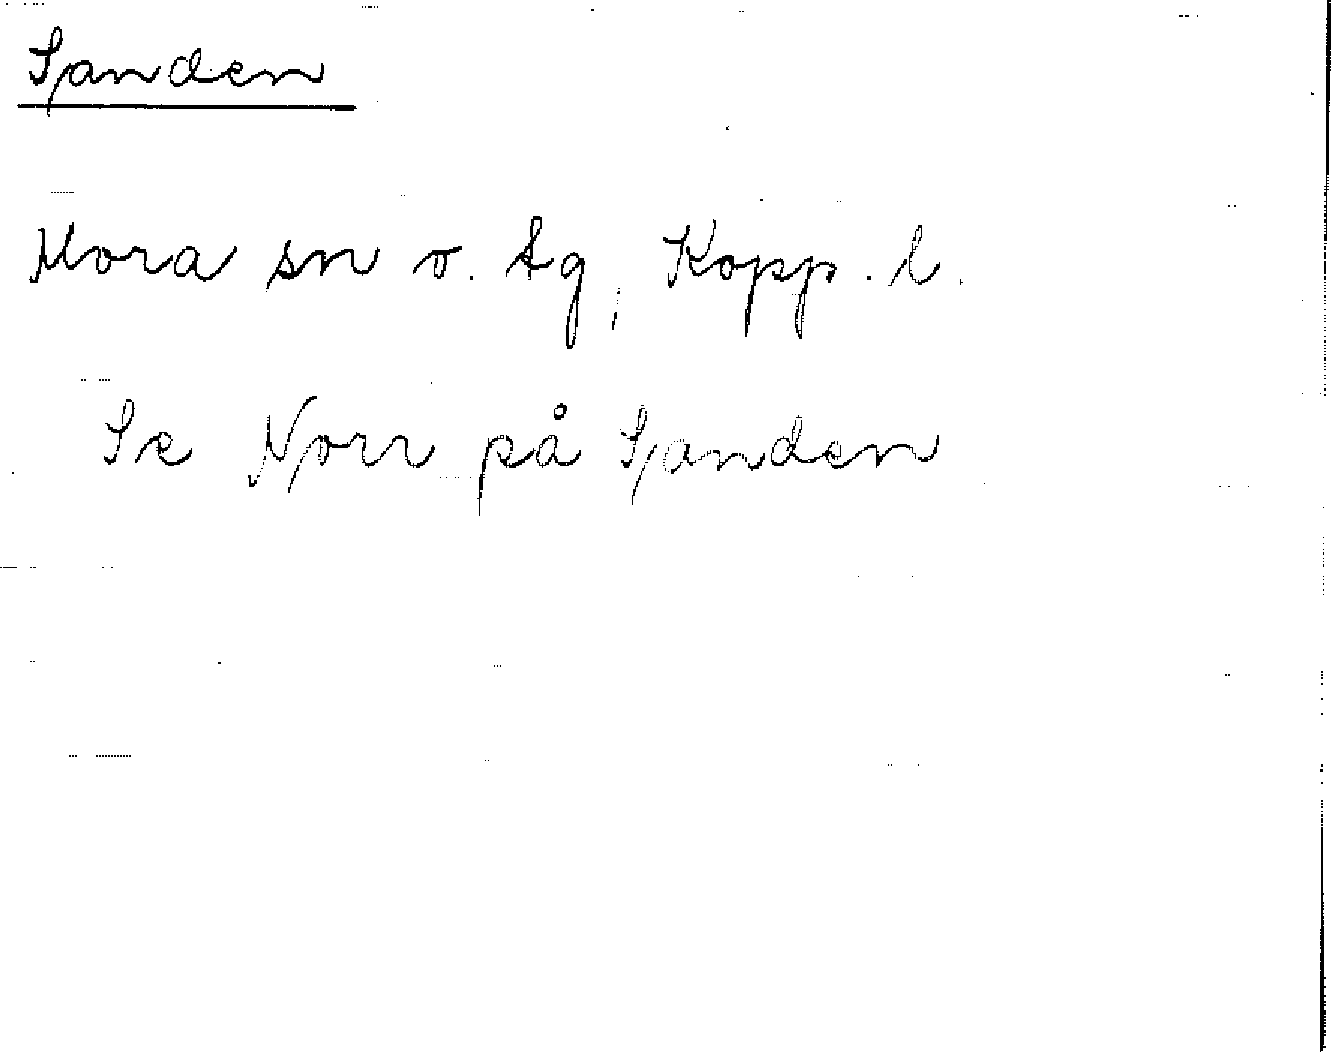 Sanden
Mora sn o. tg, Kopp. l.
Se Norr på Sanden